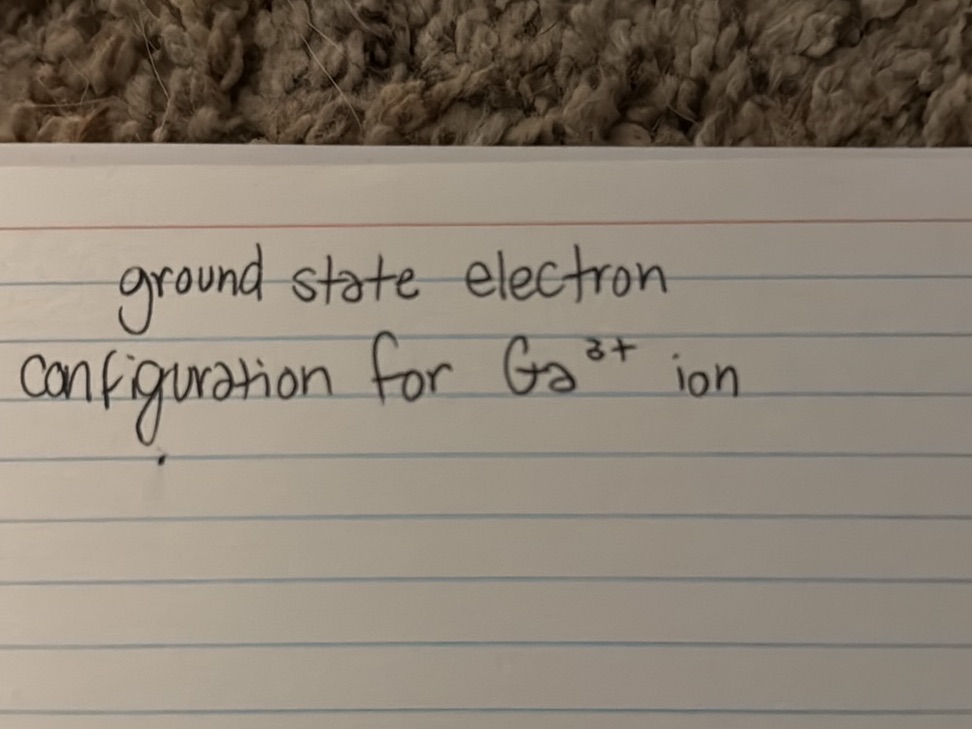 ground state electron
configuration for Ga³⁺ ion